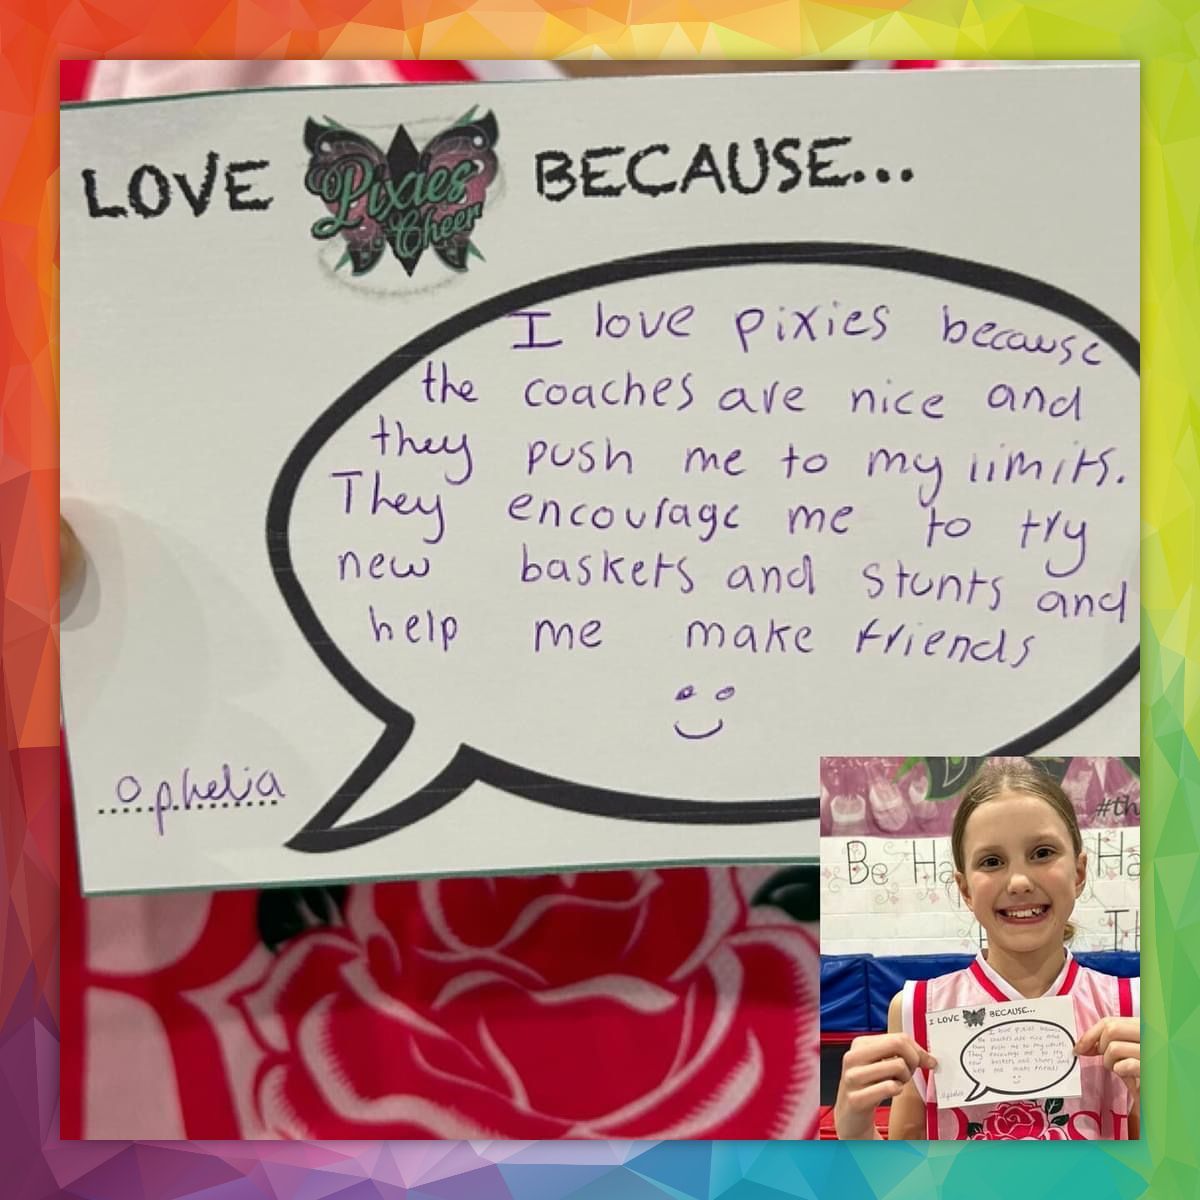 LOVE Pixies Cheer BECAUSE...
I love pixies because
the coaches are nice and
they push me to my limits.
They encourage me to try
new baskets and stunts and
help me make friends
Ophelia
#th
Be Ha Ha
Th
I LOVE BECAUSE...
I love pixies because
the coaches are nice and
they push me to my limits.
They encourage me to try
new baskets and stunts and
help me make friends
Ophelia